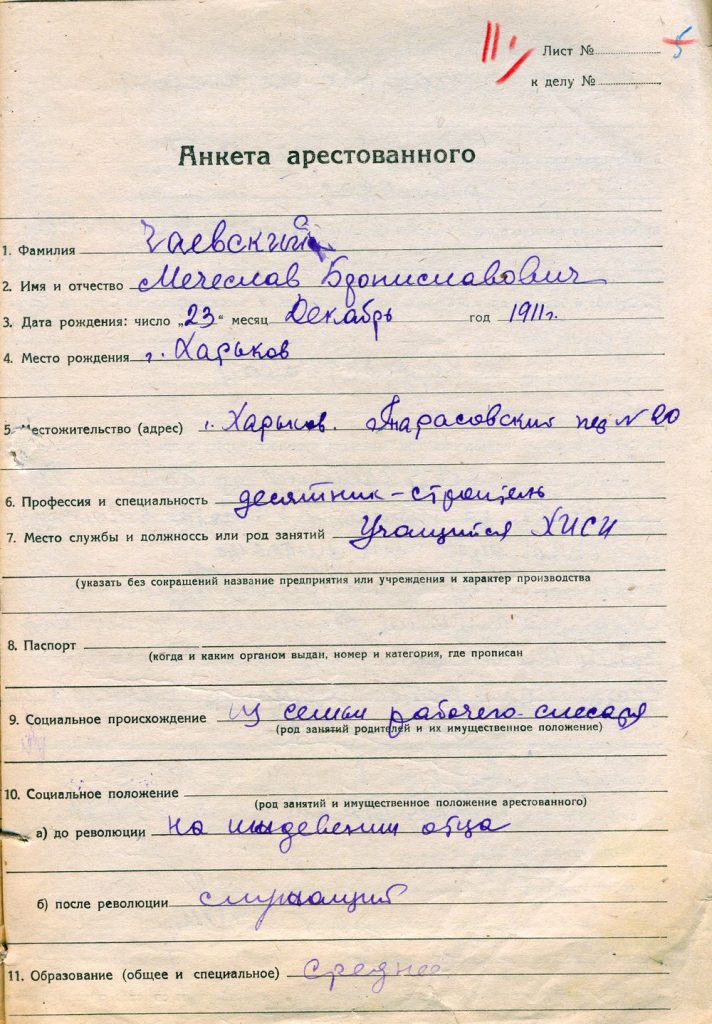 11.
Лист № 5
к делу №
Анкета арестованного
1. Фамилия Чаевский
2. Имя и отчество Мечеслав Брониславович
3. Дата рождения: число „23" месяц Декабрь год 1911г.
4. Место рождения г. Харьков
5. Местожительство (адрес) г. Харьков. Тарасовский пер № 20
6. Профессия и специальность десятник-строитель
7. Место службы и должноссь или род занятий Учащийся ХИСИ
(указать без сокращений название предприятия или учреждения и характер производства
8. Паспорт
(когда и каким органом выдан, номер и категория, где прописан
9. Социальное происхождение из семьи рабочего-слесаря
(род занятий родителей и их имущественное положение)
10. Социальное положение
(род занятий и имущественное положение арестованного)
а) до революции на отца
б) после революции служащий
11. Образование (общее и специальное) Среднее